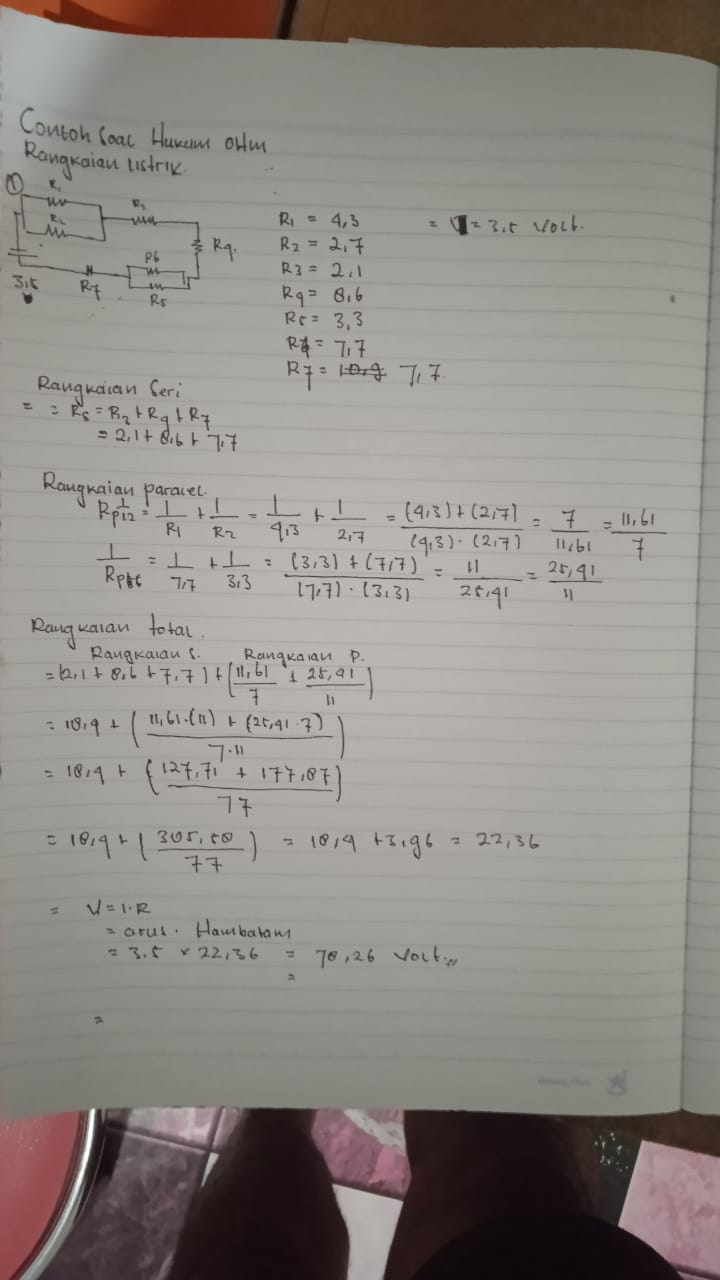 Contoh Soal Hukum OHm
Rangkaian Listrik.
①
R1
R2
R3
R4.
R6
R5
R7
3,5
R1 = 4,3 = V = 3.5 Volt.
R2 = 2,7
R3 = 2,1
R4 = 8,6
R5 = 3,3
= 7,7
R7 = 10,9 7,7.
Rangkaian Seri
= = Rs = R3 + R4 + R7
= 2,1 + 8,6 + 7,7
Rangkaian Paralel.
1/Rp12 = 1/R1 + 1/R2 = 1/4,3 + 1/2,7 = (4,3) + (2,7) / (4,3) . (2,7) = 7/11,61 = 11,61/7
1/Rp56 = 1/7,7 + 1/3,3 = (3,3) + (7,7) / (7,7) . (3,3) = 11/25,41 = 25,41/11
Rangkaian total.
Rangkaian S. Rangkaian P.
= (2,1 + 8,6 + 7,7) + (11,61/7 + 25,41/11)
= 18,4 + (11,61.(11) + (25,41.7) / 7.11)
= 18,4 + (127,71 + 177,87 / 77)
= 18,4 + (305,58 / 77) = 18,4 + 3,96 = 22,36
= V = I.R
= arus . Hambatan
= 3.5 x 22,36 = 78,26 Volt.,,
=
=